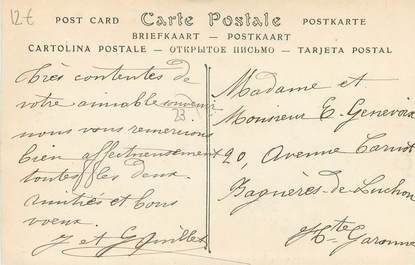 12 €
POST CARD Carte Postale POSTKARTE
BRIEFKAART — POSTKAART
CARTOLINA POSTALE — ОТКРЫТОЕ ПИСЬМО — TARJETA POSTAL
Très contentes de
votre aimable souvenir
nous vous remercions
bien affectueusement
toutes les deux.
Amitiés et bons
voeux.
J et G
Madame et
Monsieur E. Genevoix
20, Avenue Carnot
Bagnères-de-Luchon
Hte Garonne